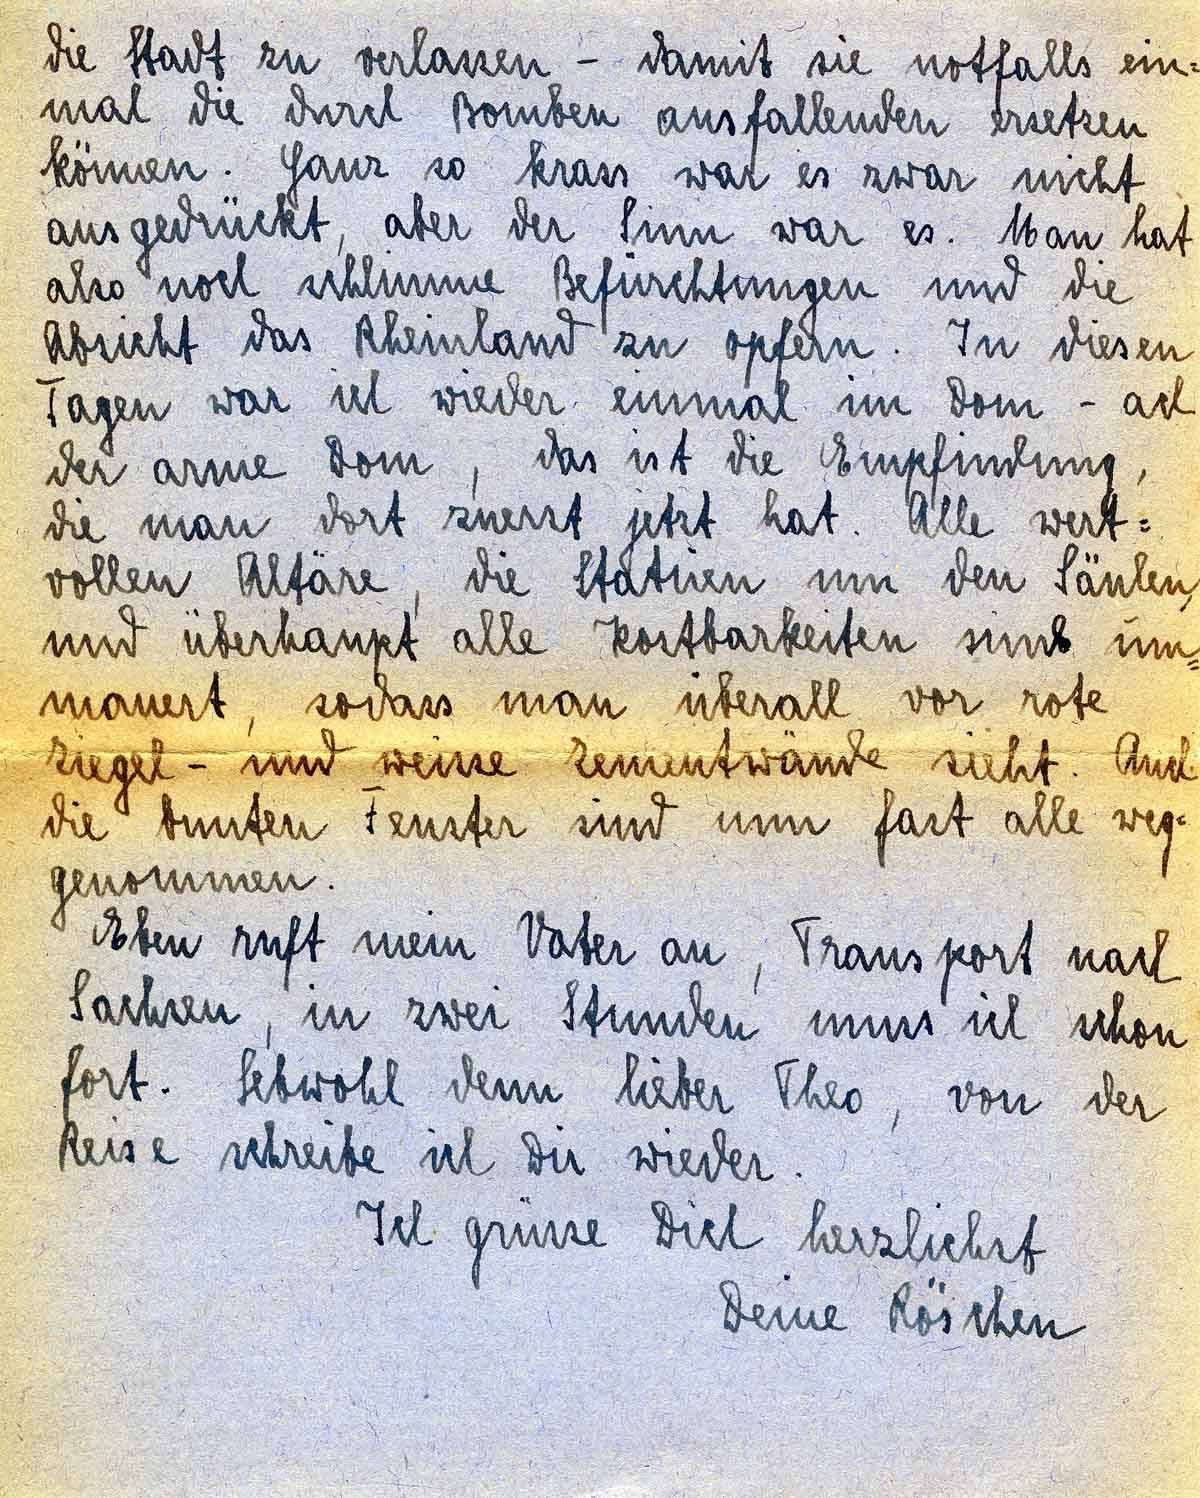 die Stadt zu verlassen – damit sie notfalls ein=
mal die durch Bomben ausfallenden ersetzen
können. Ganz so krass war es zwar nicht
ausgedrückt, aber der Sinn war es. Man hat
also noch schlimme Befürchtungen und die
Absicht das Rheinland zu opfern. In diesen
Tagen war ich wieder einmal im Dom – ach
der arme Dom, das ist die Empfindung,
die man dort zuerst jetzt hat. Alle wert=
vollen Altäre, die Statuen um den Säulen,
und überhaupt alle Kostbarkeiten sind um=
mauert, sodass man überall vor rote
Ziegel- und weisse Zementwände sieht. Auch
die bunten Fenster sind nun fast alle weg=
genommen.
Eben ruft mein Vater an, Transport nach
Sachsen, in zwei Stunden muss ich schon
fort. Lebwohl denn lieber Theo, von der
Reise schreibe ich Dir wieder.
Ich grüsse Dich herzlichst
Deine Röschen